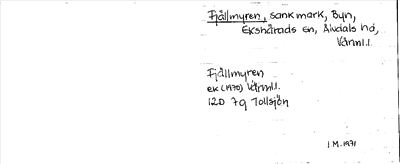 Fjällmyren, sankmark, Byn,
Ekshärads sn, Älvdals hd,
Värml.l.
Fjällmyren
ek (1970) Värml.l.
12D 7g Tollsjön
I.M. 1971